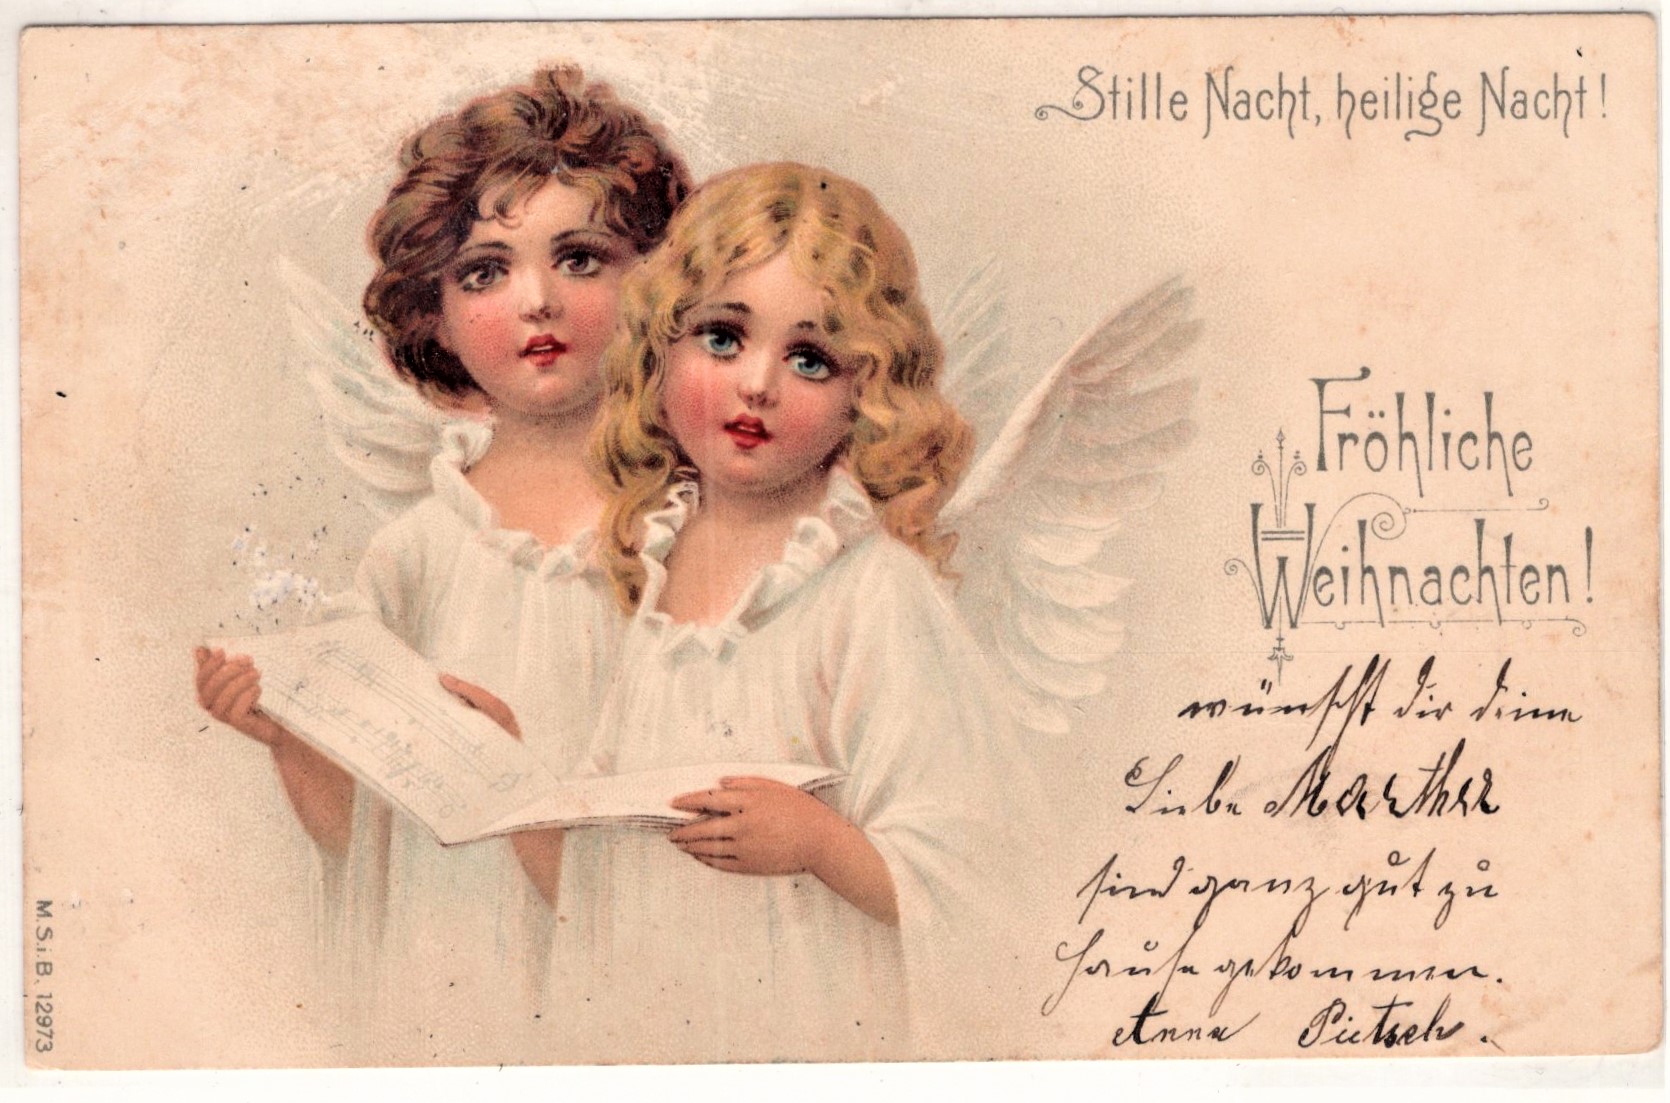 Stille Nacht, heilige Nacht!
Fröhliche
Weihnachten!
wünscht dir deine
Liebe Martha
sind ganz gut zu
Hause gekommen.
Anna Pietsch.
M.S.i.B. 12973